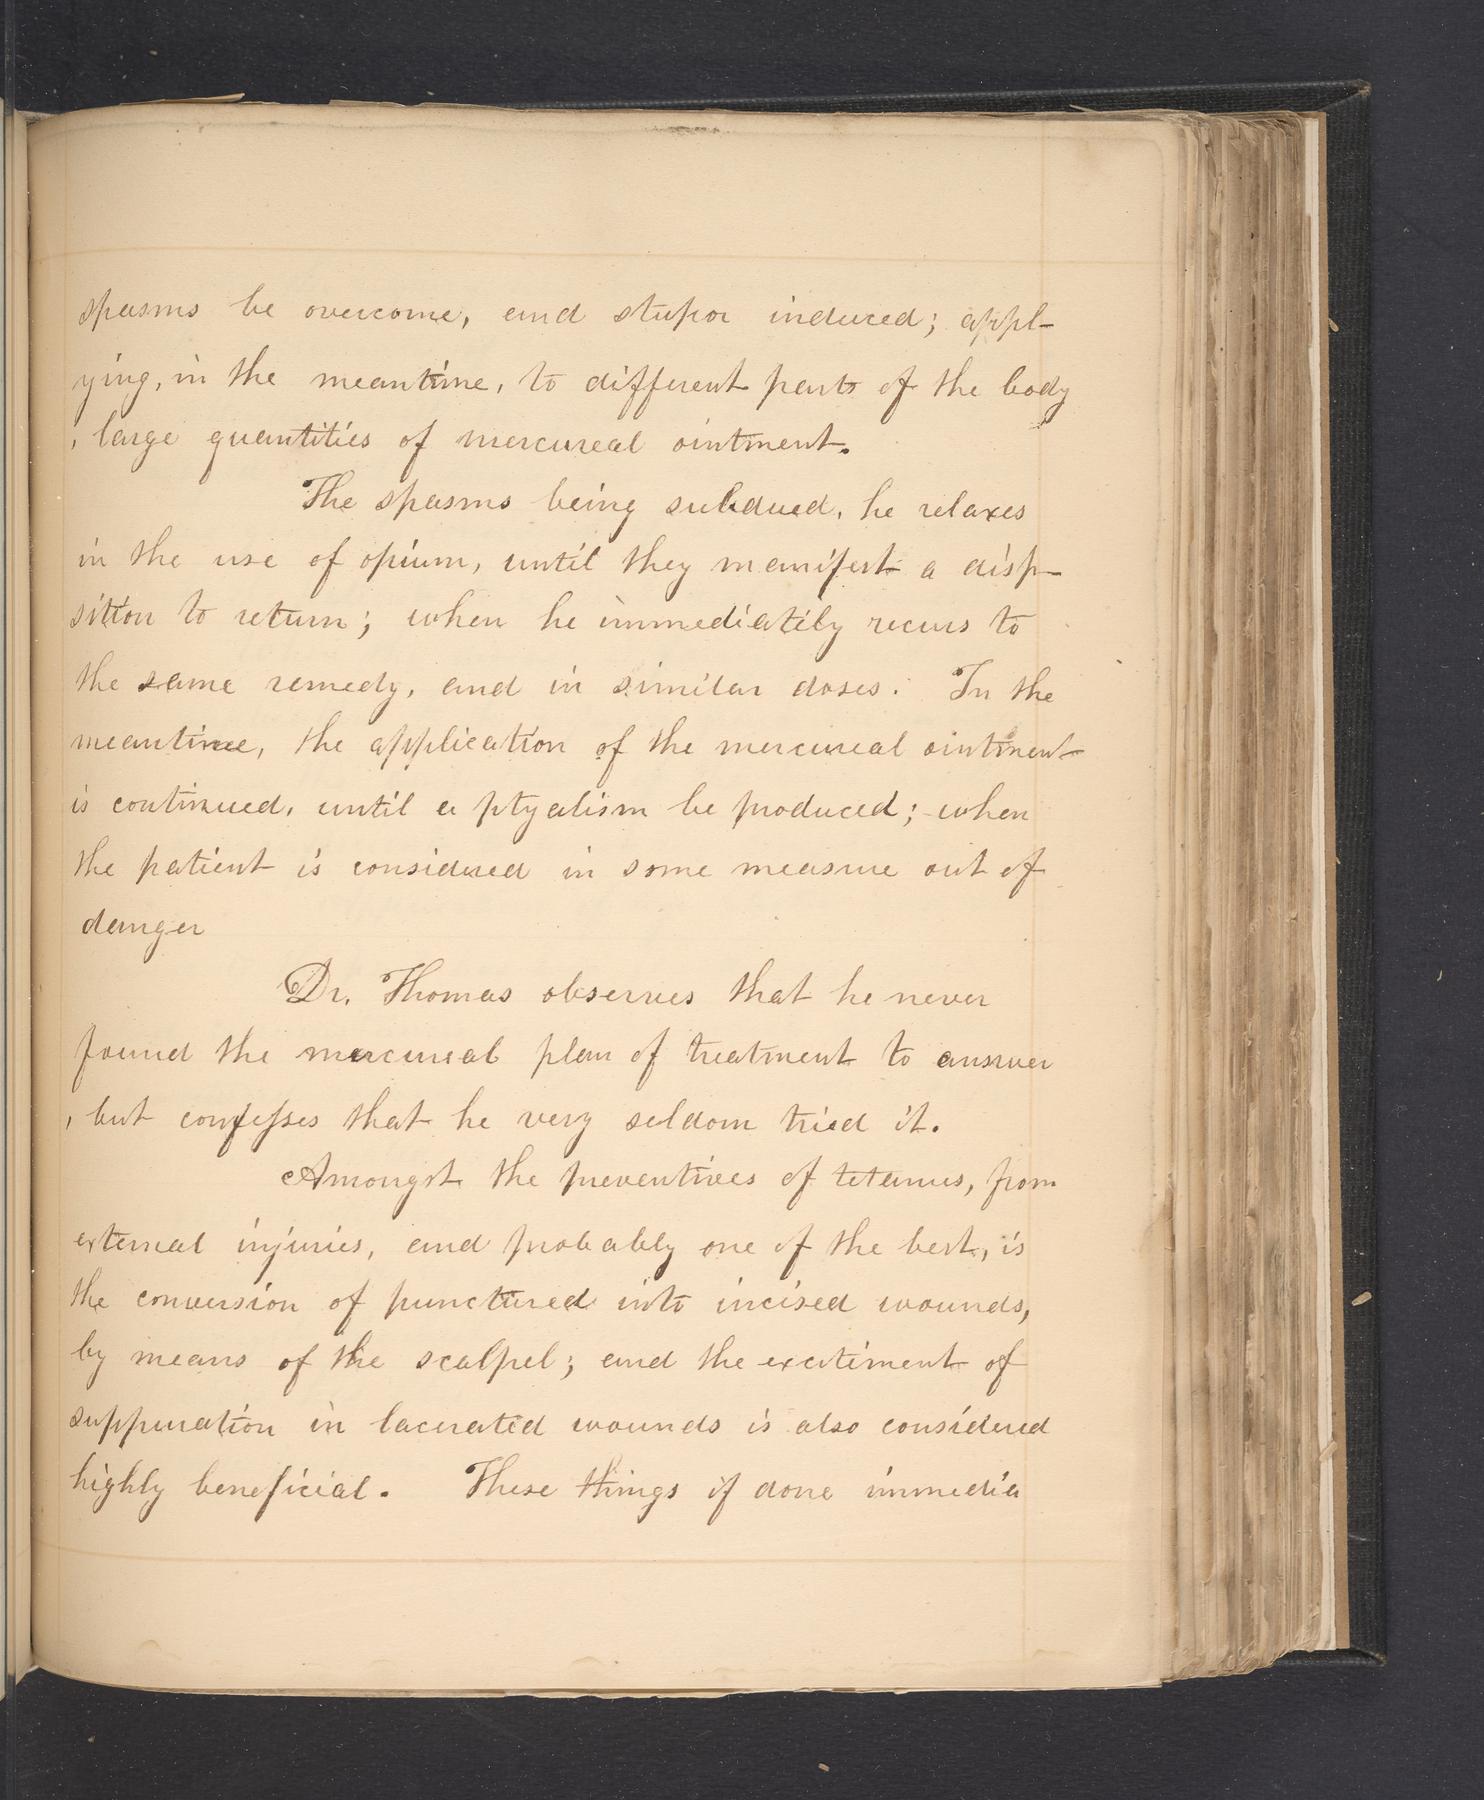 spasms be overcome, and stupor induced; appl-
ying, in the meantime, to different parts of the body
, large quantities of mercureal ointment.
The spasms being subdued, he relaxes
in the use of opium, until they manifest a disp-
sition to return; when he immediatily recurs to
the same remedy, and in similar doses. In the
meantime, the application of the mercureal ointment
is continued, until a ptyalism be produced; when
the patient is considered in some measure out of
danger
Dr. Thomas observes that he never
found the mercureal plan of treatment to answer
, but confesses that he very seldom tried it.
Amongst the preventives of tetanus, from
external injuries, and probably one of the best, is
the conversion of punctured into incised wounds,
by means of the scalpel; and the excitiment of
suppuration in lacerated wounds is also considered
highly beneficial. These things if done immedia